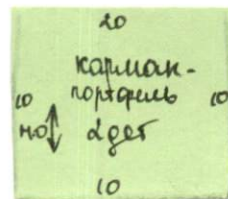 20
карман-
портфель
10 10
н.о 2 дет
10